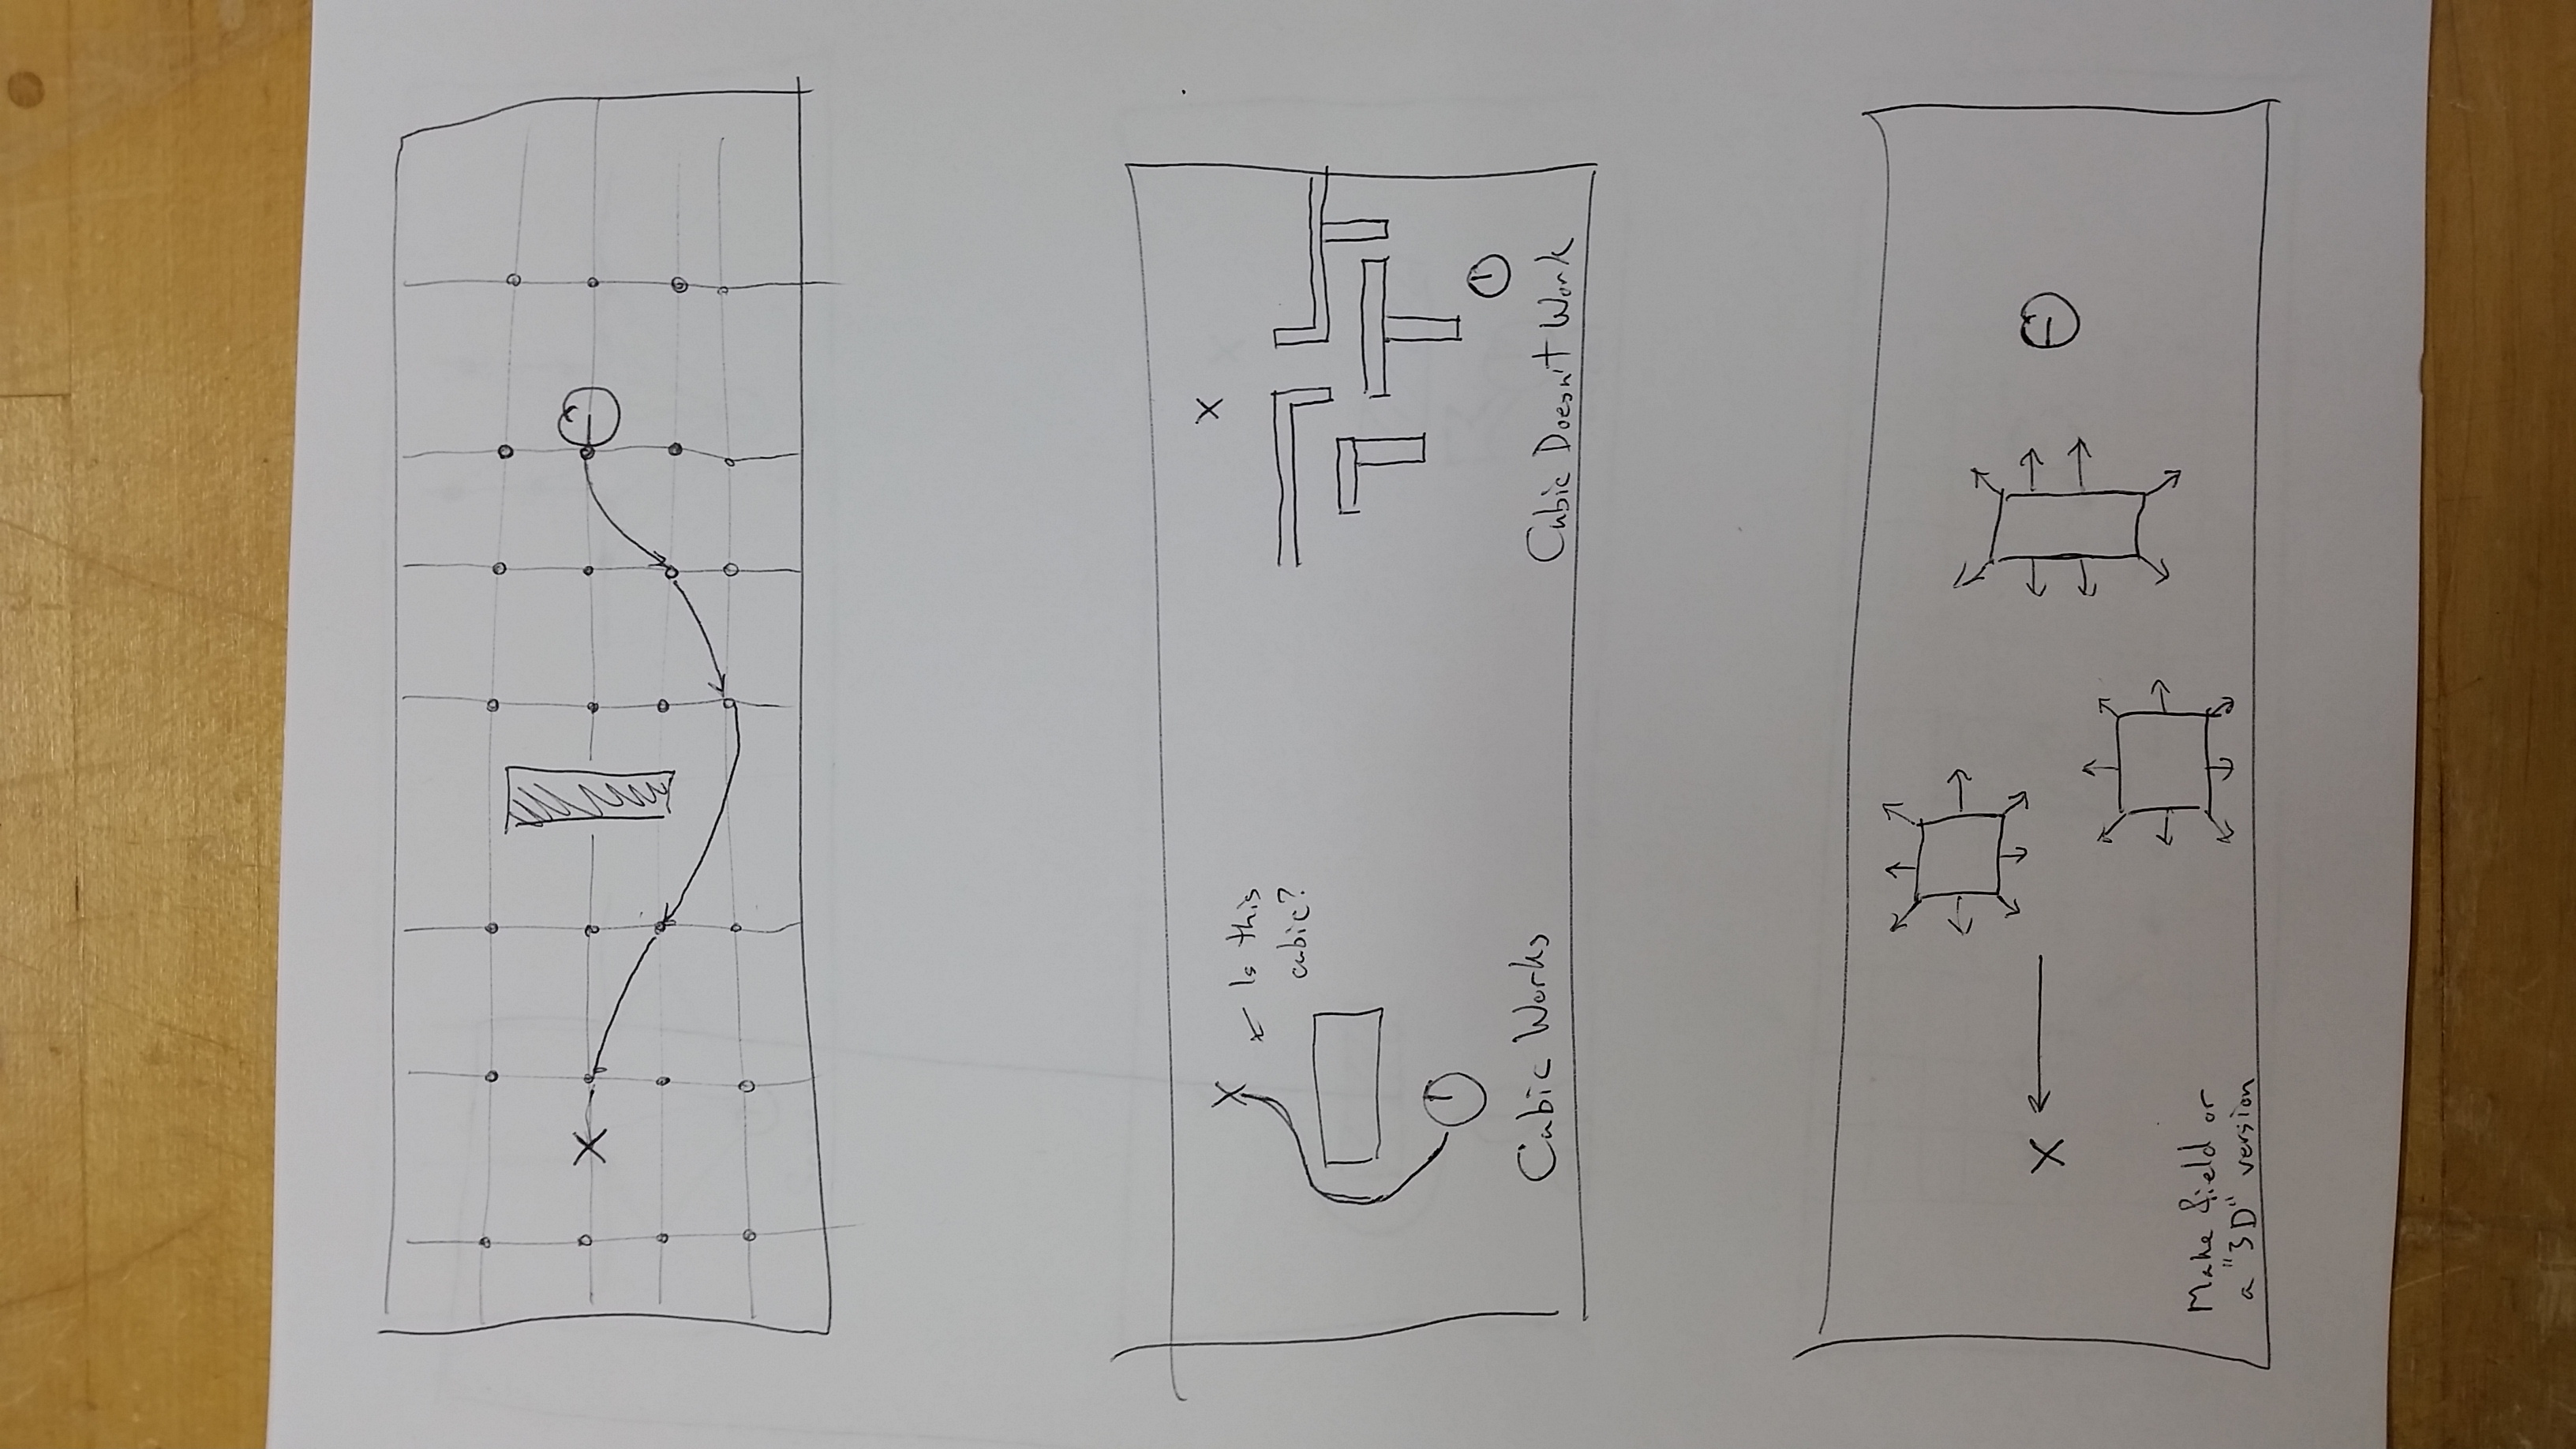 X
X
Is this
cubic?
X
Cubic Works
Cubic Doesn't Work
X
Make field or
a "3D" version